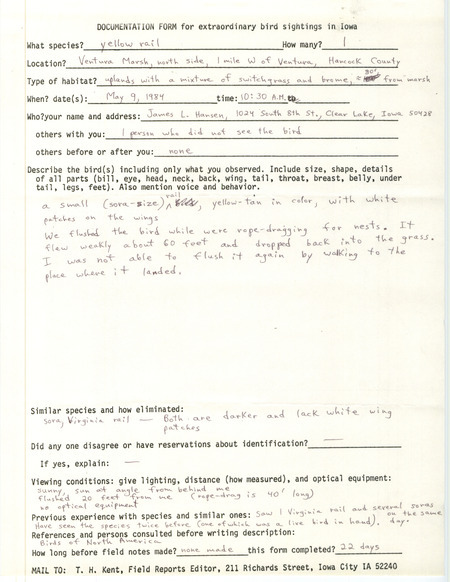 DOCUMENTATION FORM for extraordinary bird sightings in Iowa
What species? yellow rail How many? 1
Location? Ventura Marsh, north side, 1 mile W of Ventura, Hancock County
Type of habitat? uplands with a mixture of switchgrass and brome, ≈ 30' from marsh
When? date(s): May 9, 1984 time: 10:30 A.M. to
Who? your name and address: James L. Hansen, 1024 South 8th St., Clear Lake, Iowa 50428
others with you: 1 person who did not see the bird
others before or after you: none
Describe the bird(s) including only what you observed. Include size, shape, details
of all parts (bill, eye, head, neck, back, wing, tail, throat, breast, belly, under
tail, legs, feet). Also mention voice and behavior.
a small (sora-size) rail, yellow-tan in color, with white
patches on the wings
We flushed the bird while were rope-dragging for nests. It
flew weakly about 60 feet and dropped back into the grass.
I was not able to flush it again by walking to the
place where it landed.
Similar species and how eliminated:
sora, Virginia rail — Both are darker and lack white wing
patches
Did any one disagree or have reservations about identification? —
If yes, explain: —
Viewing conditions: give lighting, distance (how measured), and optical equipment:
sunny, sun at angle from behind me
flushed 20 feet from me (rope-drag is 40' long)
no optical equipment
Previous experience with species and similar ones: Saw 1 Virginia rail and several soras on the same day.
Have seen the species twice before (one of which was a live bird in hand).
References and persons consulted before writing description:
Birds of North America
How long before field notes made? none made this form completed? 22 days
MAIL TO: T. H. Kent, Field Reports Editor, 211 Richards Street, Iowa City IA 52240